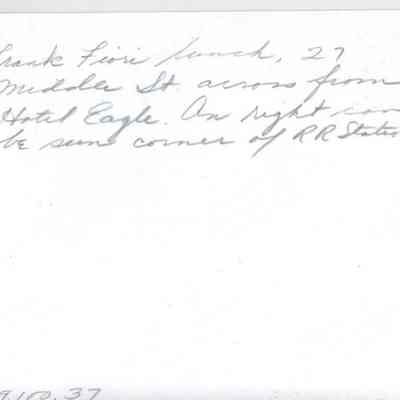 Frank Fiori Lunch, 27
Middle St. across from
Hotel Eagle. On right can
be seen corner of RR Station
9100.37